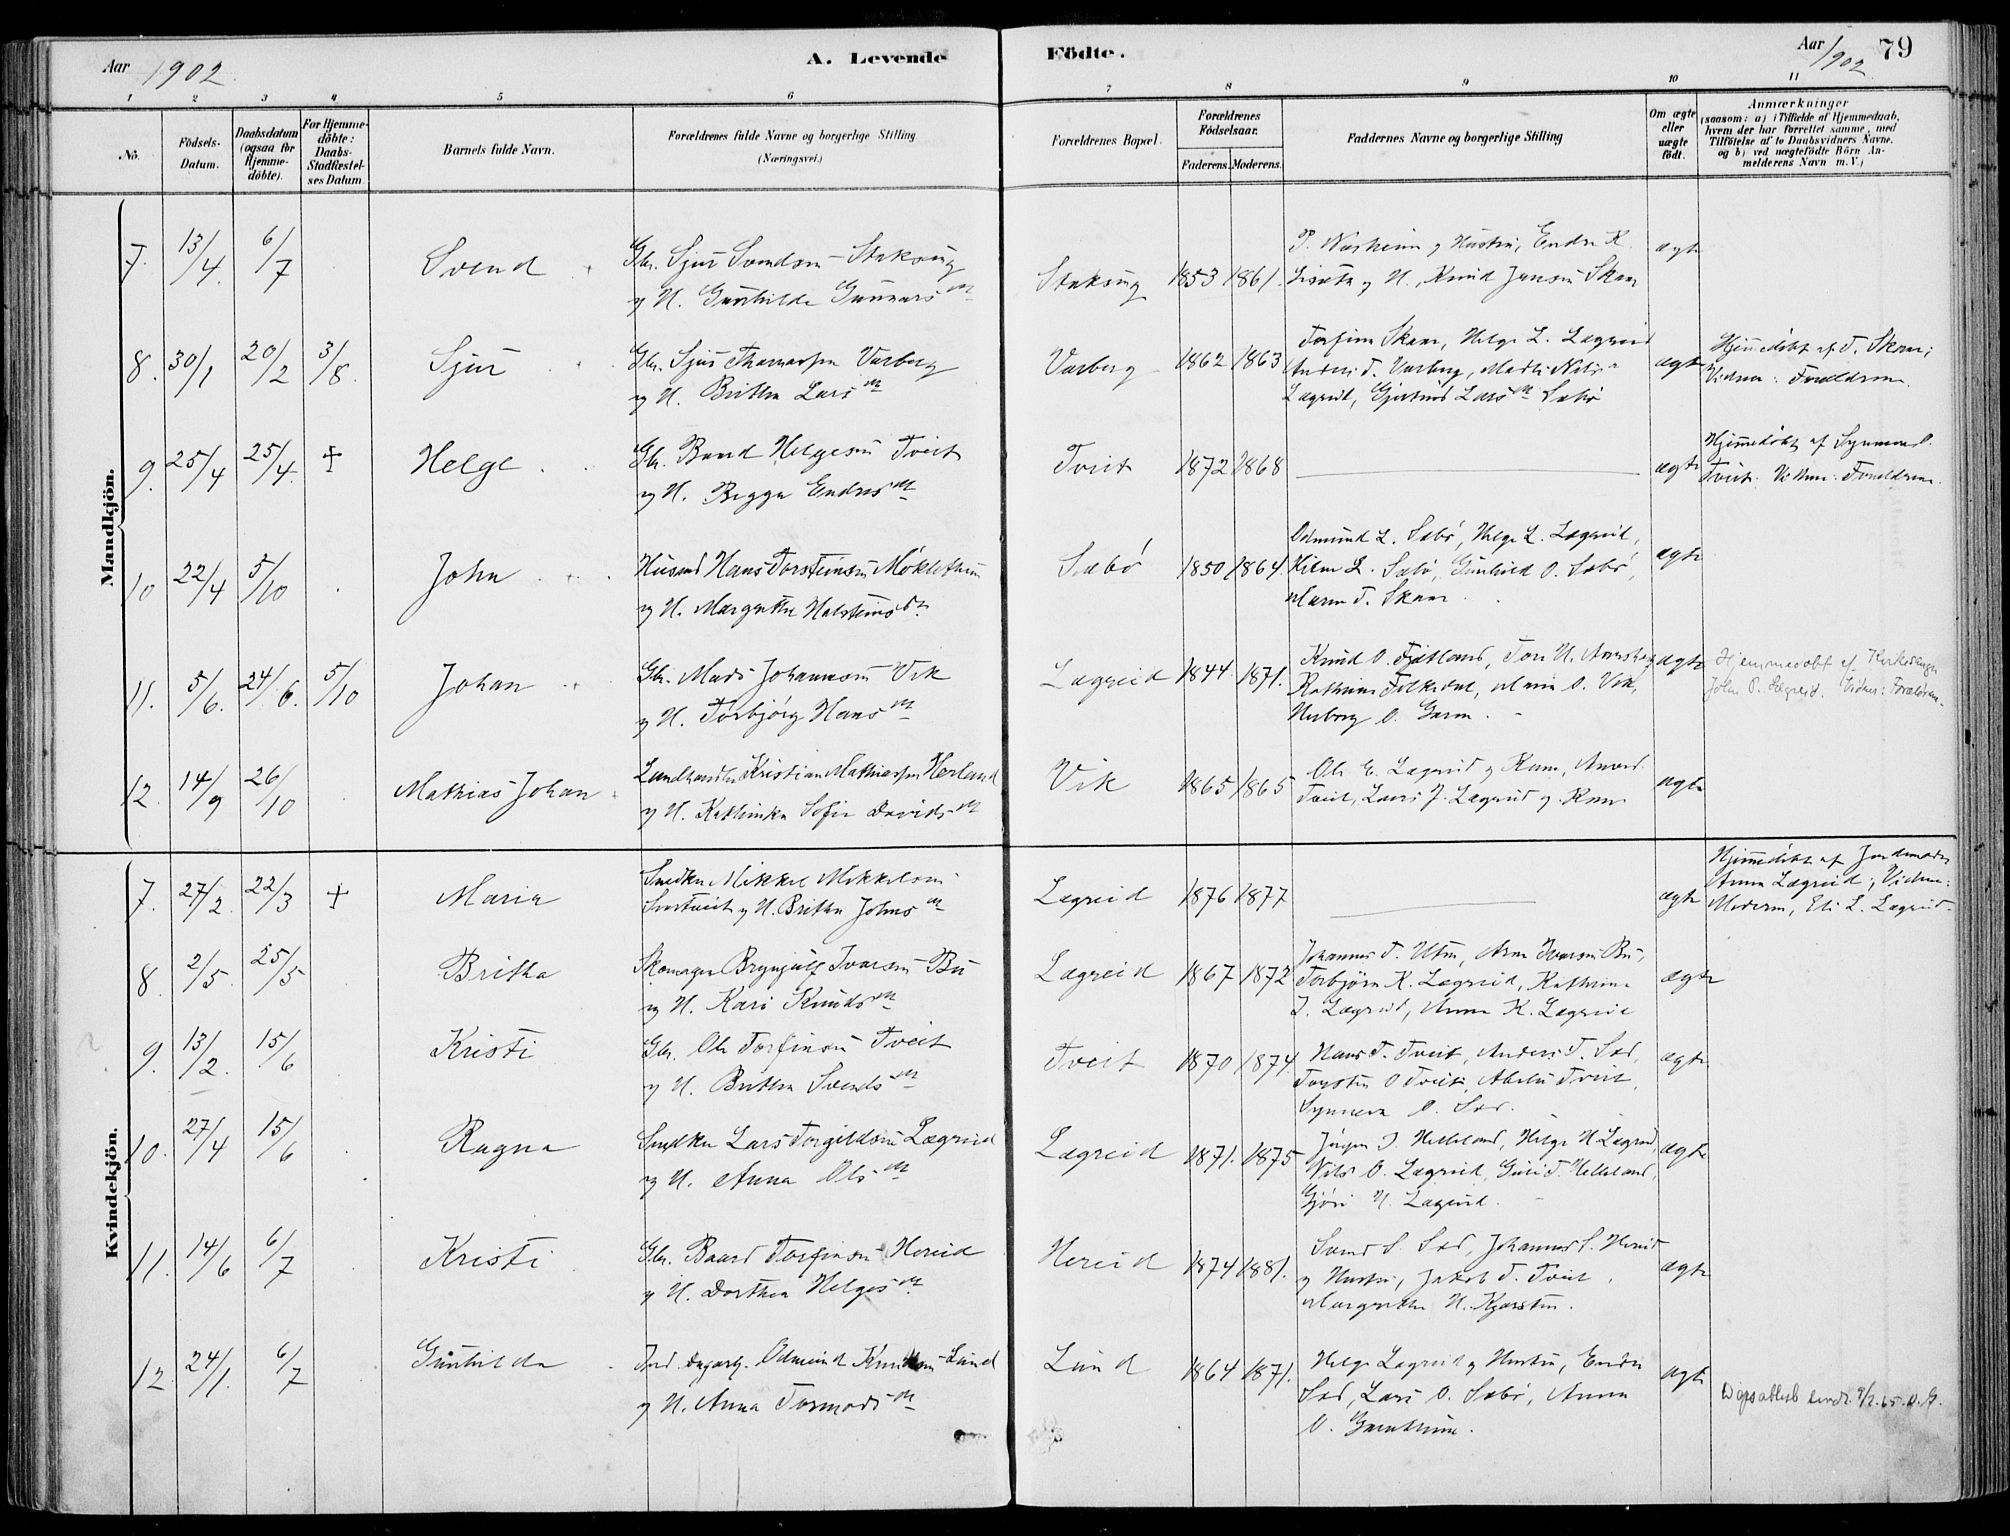 Aar 1902. A. Levende Födte. Aar 1902. 79
1 2 3 4 5 6 7 8 9 10 11
No. Födsels-Datum. Daabsdatum (ogsaa for Hjemme-döbte). For Hjemme-döbte: Daabs-Stadfæstel-ses Datum. Barnets fulde Navn. Forældrenes fulde Navne og borgerlige Stilling. (Næringsvei.) Forældrenes Bopæl. Forældrenes Födselsaar. Faderens. Moderens. Faddernes Navne og borgerlige Stilling Om ægte eller uægte födt. Anmærkninger (saasom: a) i Tilfælde af Hjemmedaab, hvem der har forrettet samme, med Tilföielse af to Daabsvidners Navne, og b) ved uægtefödte Börn Anmelderens Navn m.V.)
Mandkjön.
7. 13/4. 6/7 Svend Gbr. Sjur Svendsen Stakseng
y H. Gunhilde Gunnars Staksung 1853 1861. Knud Jansen Skaar ægte
8. 30/1 20/2 3/8. Sjur Gbr. Sjur Thomassen Varberg
y H. Britha Lars Varberg 1862 1863 Torfinn Skaar, Helge L. Lægreid
Anders T. Varberg, Marthe Nils
Lægreid, Gjertrud Lars Sæbø ægte Hjemmedöbt af T. Skaar;
Vidner: Forældrene.
9. 25/4 25/4. † Helge Gbr. Baard Helgesen Tveit
y H. Brygga Endres Tveit 1872 1868 ægte Hjemmedöbt af Synneve O.
Tveit. Vidner: Forældrene.
10 22/4 5/10 John Husmd Hans Torsteinsen Møklethun
y H. Margretha Halsteinsdr. Sæbø 1850 1864. Odmund L. Sæbø, Helge L. Lægreid,
L. Sæbø, Gunhild O. Sæbø,
Maren T. Skaar ægte
11. 5/6. 24/6. 5/10 Johan Gbr. Mads Johannesen Vik
y H. Torbjörg Hans Lægreid 1844 1871. Knud O. Fjetland, Tore N.
Kathrine Folkedal, Maria O. Vik,
Herborg O. Garen. ægte Hjemmedøbt af Kirkesanger
John O. Lægreid. Vidner: Forældren
12. 14/9 26/10 Mathias Johan Landhandler Kristian Mathiassen Herland
y H. Kathinka Sofie Davids Vik 1865 1865 Ole E. Lægreid y Kone,
Tveit, Lars J. Lægreid y Kone ægte
Kvindekjön.
7. 27/2. 22/3 † Maria Snedker Mikkel Mikkelsen
Svartveit y H. Britha Johns Lægreid 1876 1877 ægte Hjemmedöbt af Jordmoder
Anna Lægreid; Vidner:
Moderen, Eli L. Lægreid.
8. 2/5. 25/5 Britha Skomager Brynjulf Ivarsen Bu
y H. Kari Knuds Lægreid 1867 1872 Johannes T. Utne, Arne Ivarsen Bu,
Torbjörn K. Lægreid, Kathrina
J. Lægreid, Anna K. Lægreid ægte
9. 13/2. 15/6 Kristi Gbr. Ole Torfinsen Tveit
y H. Britha Svends Tveit 1870 1874. Hans T. Tveit, Anders T. Sæd,
Torstein O Tveit, Tveit,
Synneva O. Sæd. ægte
10. 27/4 15/6 Ragna Snedker Lars Torgildsen Lægreid
y H. Anna Ols Lægreid 1871. 1875 Jörgen J. Helleland, Helge H. Lægreid,
Nils O. Lægreid, Guri T. Helleland,
Gjöri H. Lægreid. ægte
11. 14/6 6/7 Kristi Gbr. Baard Torfinsen Hereid
y H. Dorthea Helges Hereid 1874 1881. Svend S. Sæd, Johannes S. Hereid
y Hustru, Jakob T. Tveit,
Margretha H. Kjærstein. ægte
12. 24/1. 6/7 Gunhilda Ind. Dagarb. Odmund Knudsen Lund
y H. Anna Tormods Lund 1864 1871. Helge Lægreid y Hustru, Endre
Sæd, Lars O. Sæbø, Anna
O. Garathun. ægte Dåpsattest sendt 9/2.65.